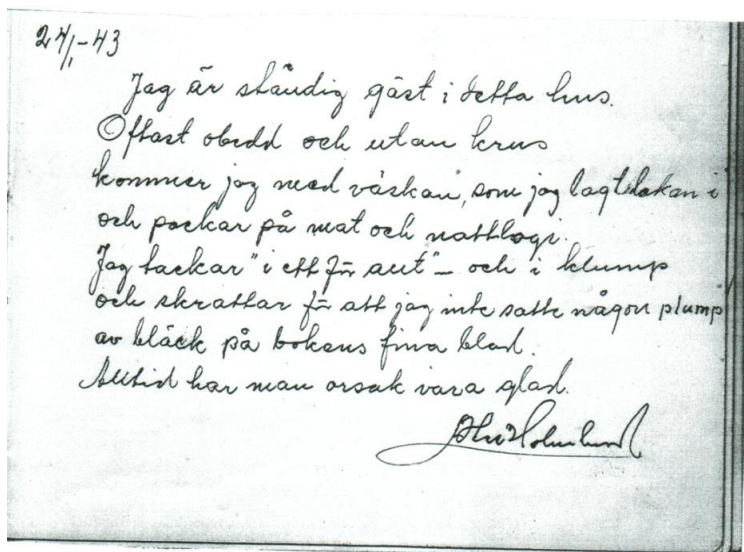 24/1-43
Jag är ständig gäst i detta hus.
Oftast obedd och utan krus
kommer jag med väskan, som jag lagt lakan i
och pockar på mat och nattlogi.
Jag tackar "i ett för allt" – och i klump
och skrattar för att jag inte satte någon plump
av bläck på bokens fina blad.
Alltid har man orsak vara glad.
Holmlund